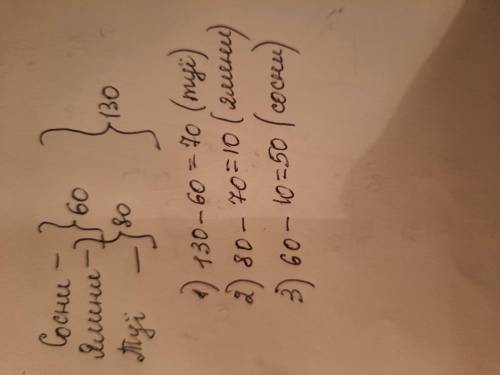 Сосни – } 60 } 130
Ялини – } } 80
Туї –
1) 130 – 60 = 70 (туї)
2) 80 – 70 = 10 (ялини)
3) 60 – 10 = 50 (сосни)